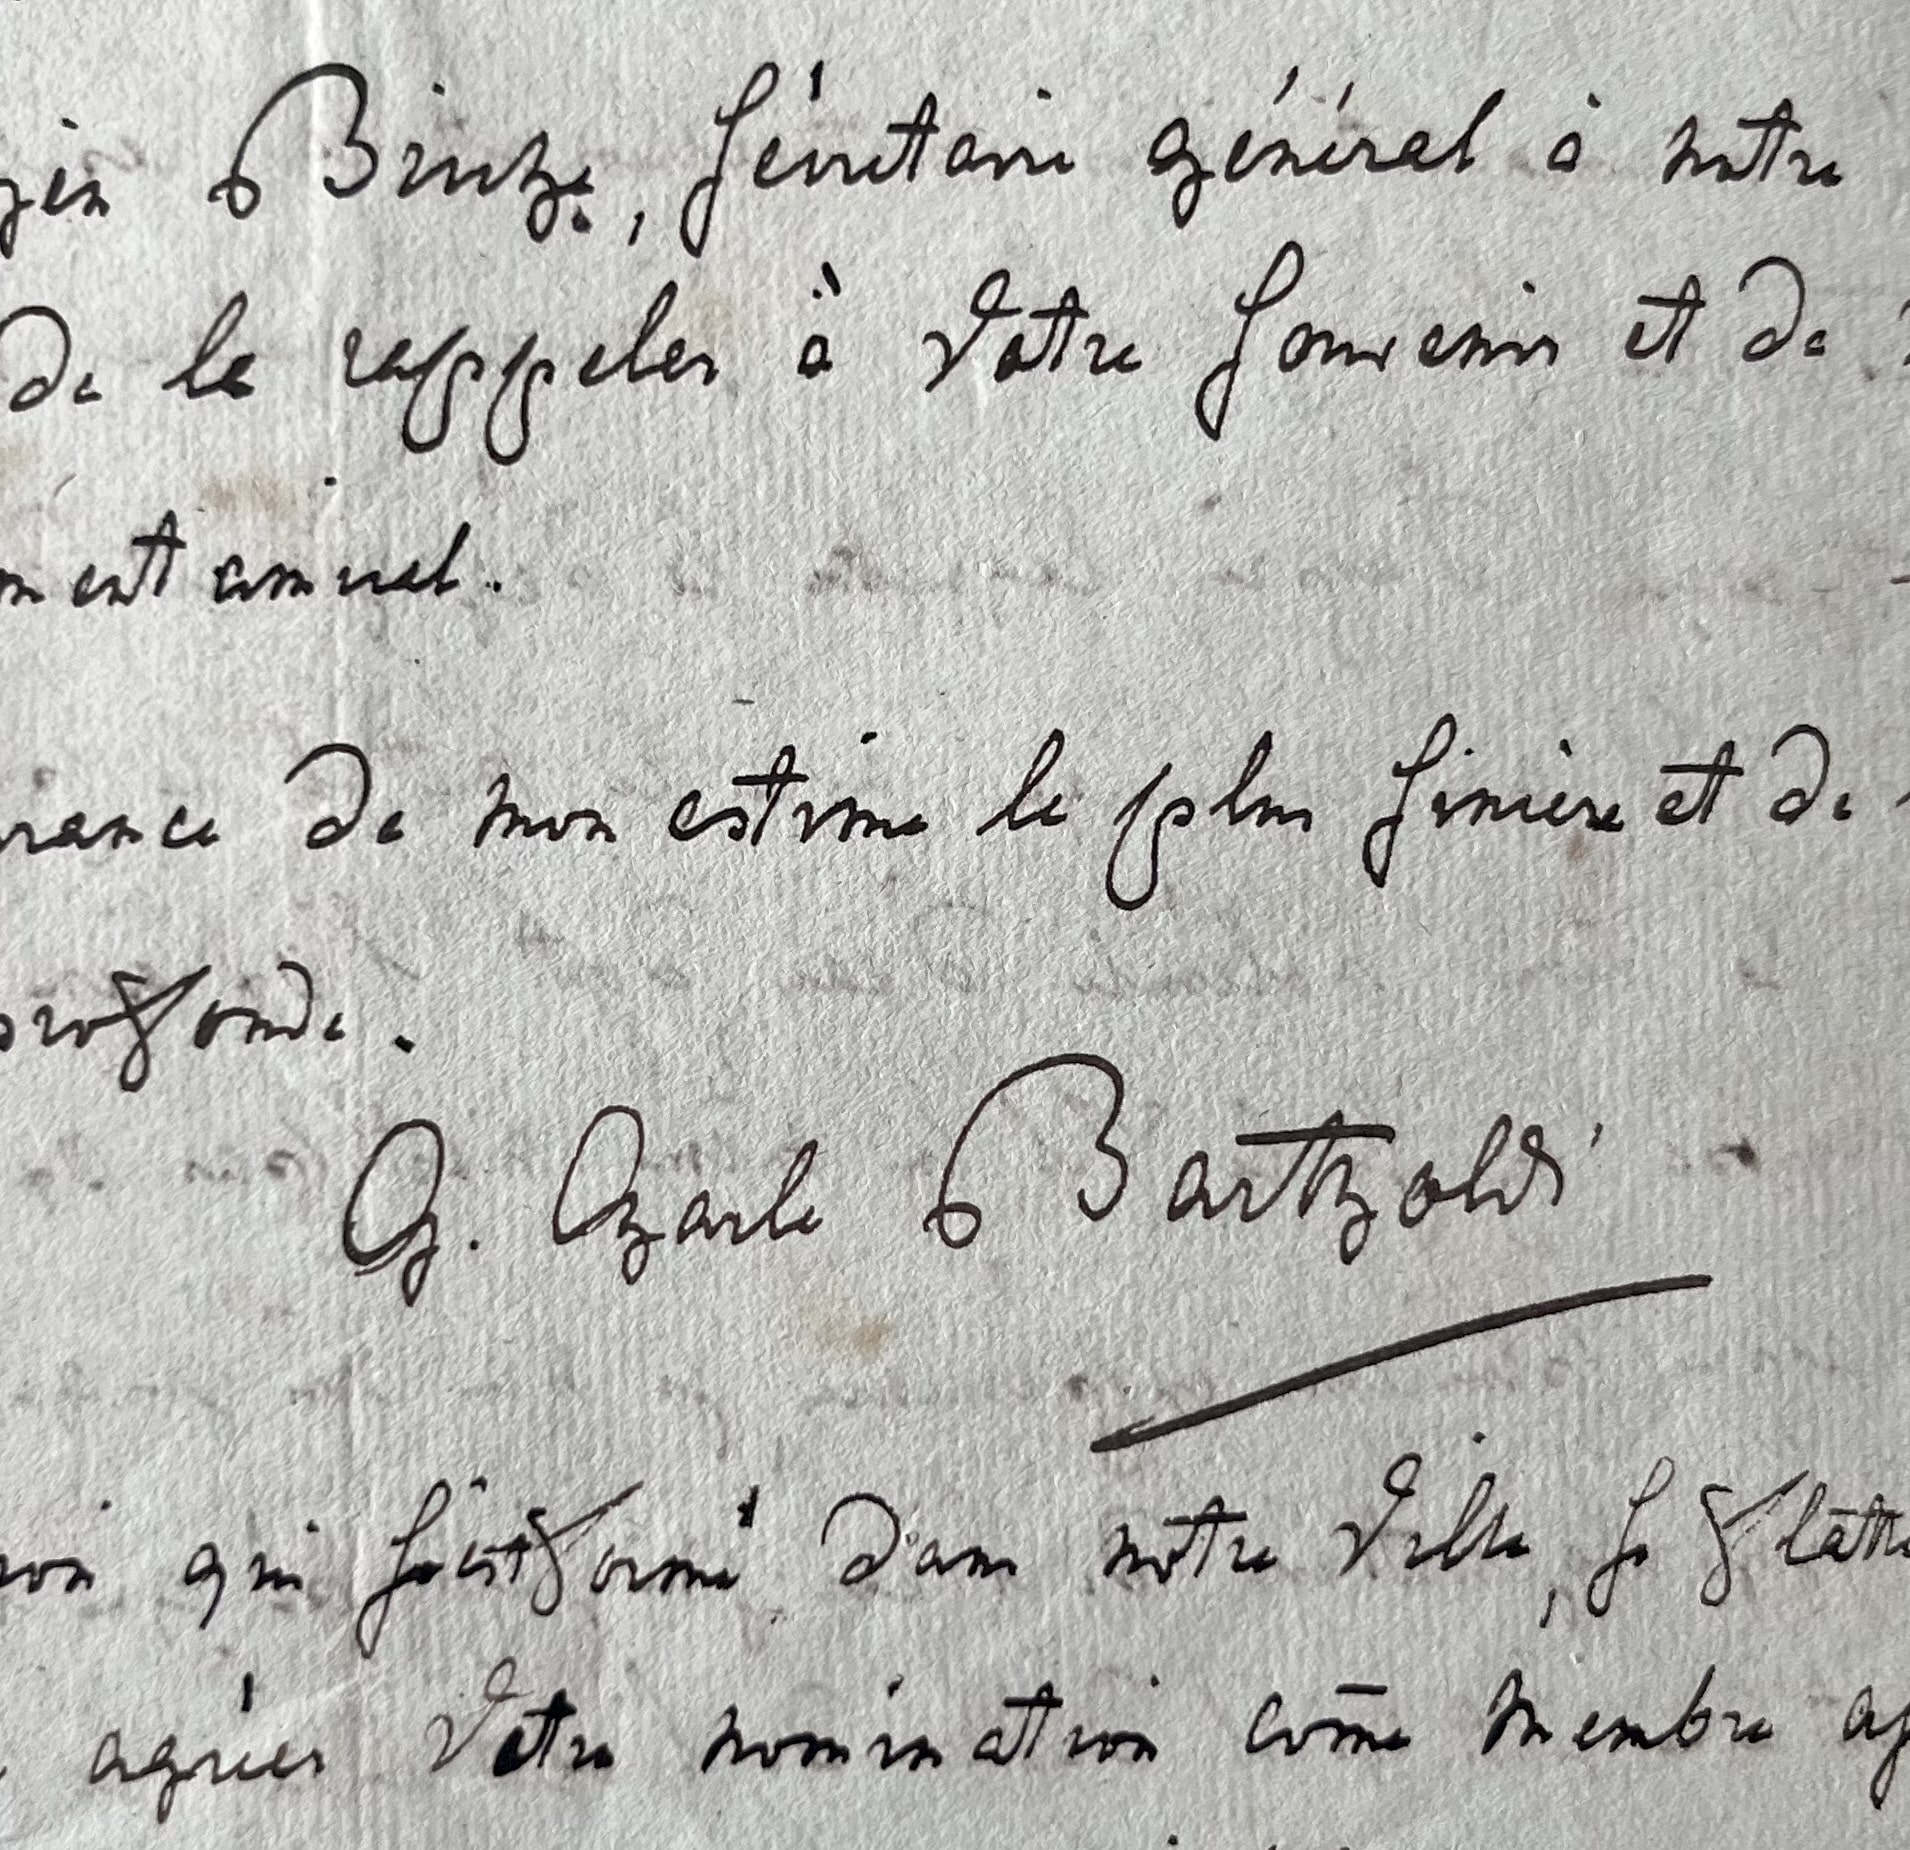 Bintz., Sécretaire général à notre
de le rappeler à Votre Souvenir et de
ment annuel.
rance de mon estime le plus sincère et de
profonde.
G. Charle Bartholdi
qui s'est formé dans notre Ville, se flatte
agréer Votre nomination come membre